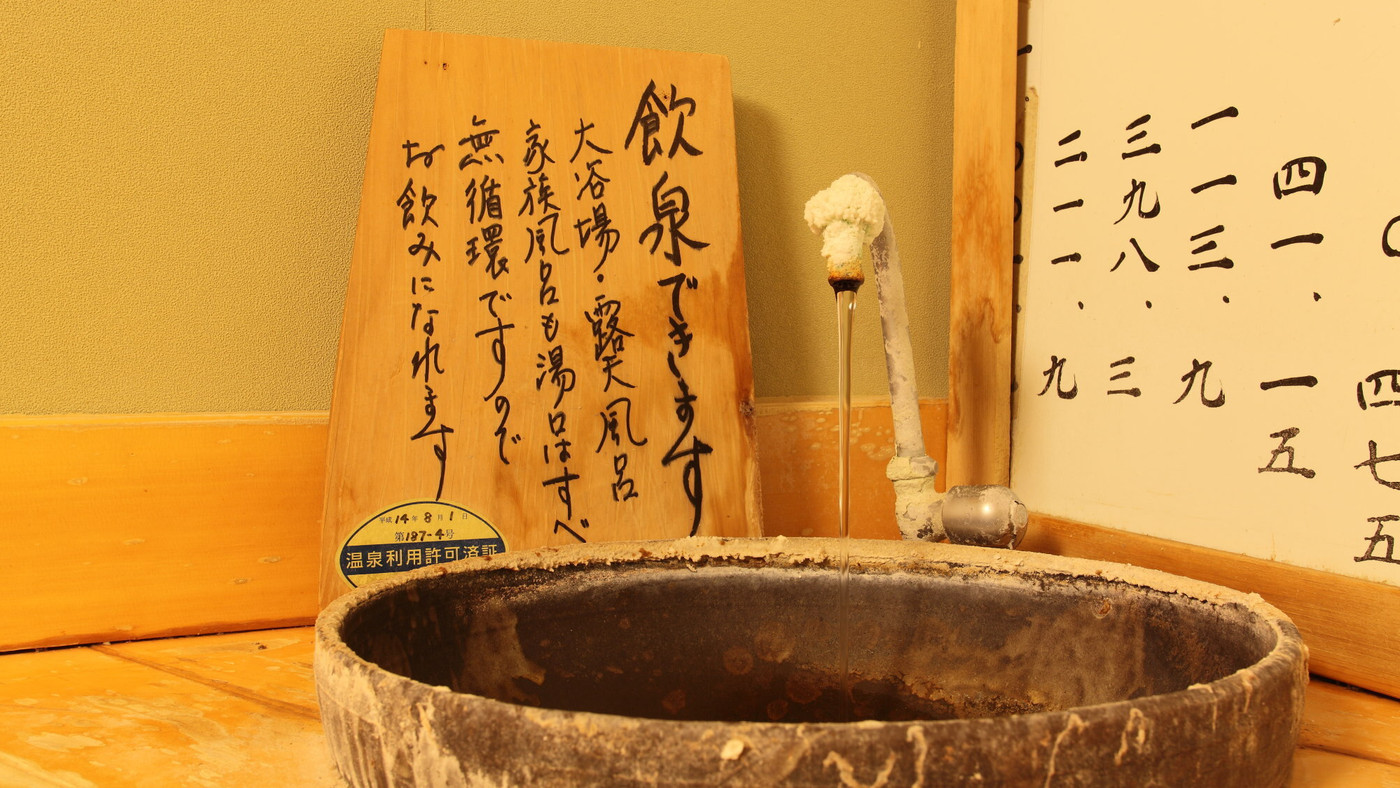 飲泉できます
大谷場・露天風呂
家族風呂も湯口はすべ
無循環ですので
お飲みになれます
平成14年8月1日
第187-4号
温泉利用許可済証
四七五
四一.一五
一一三.九
三九八.三
二一一.九